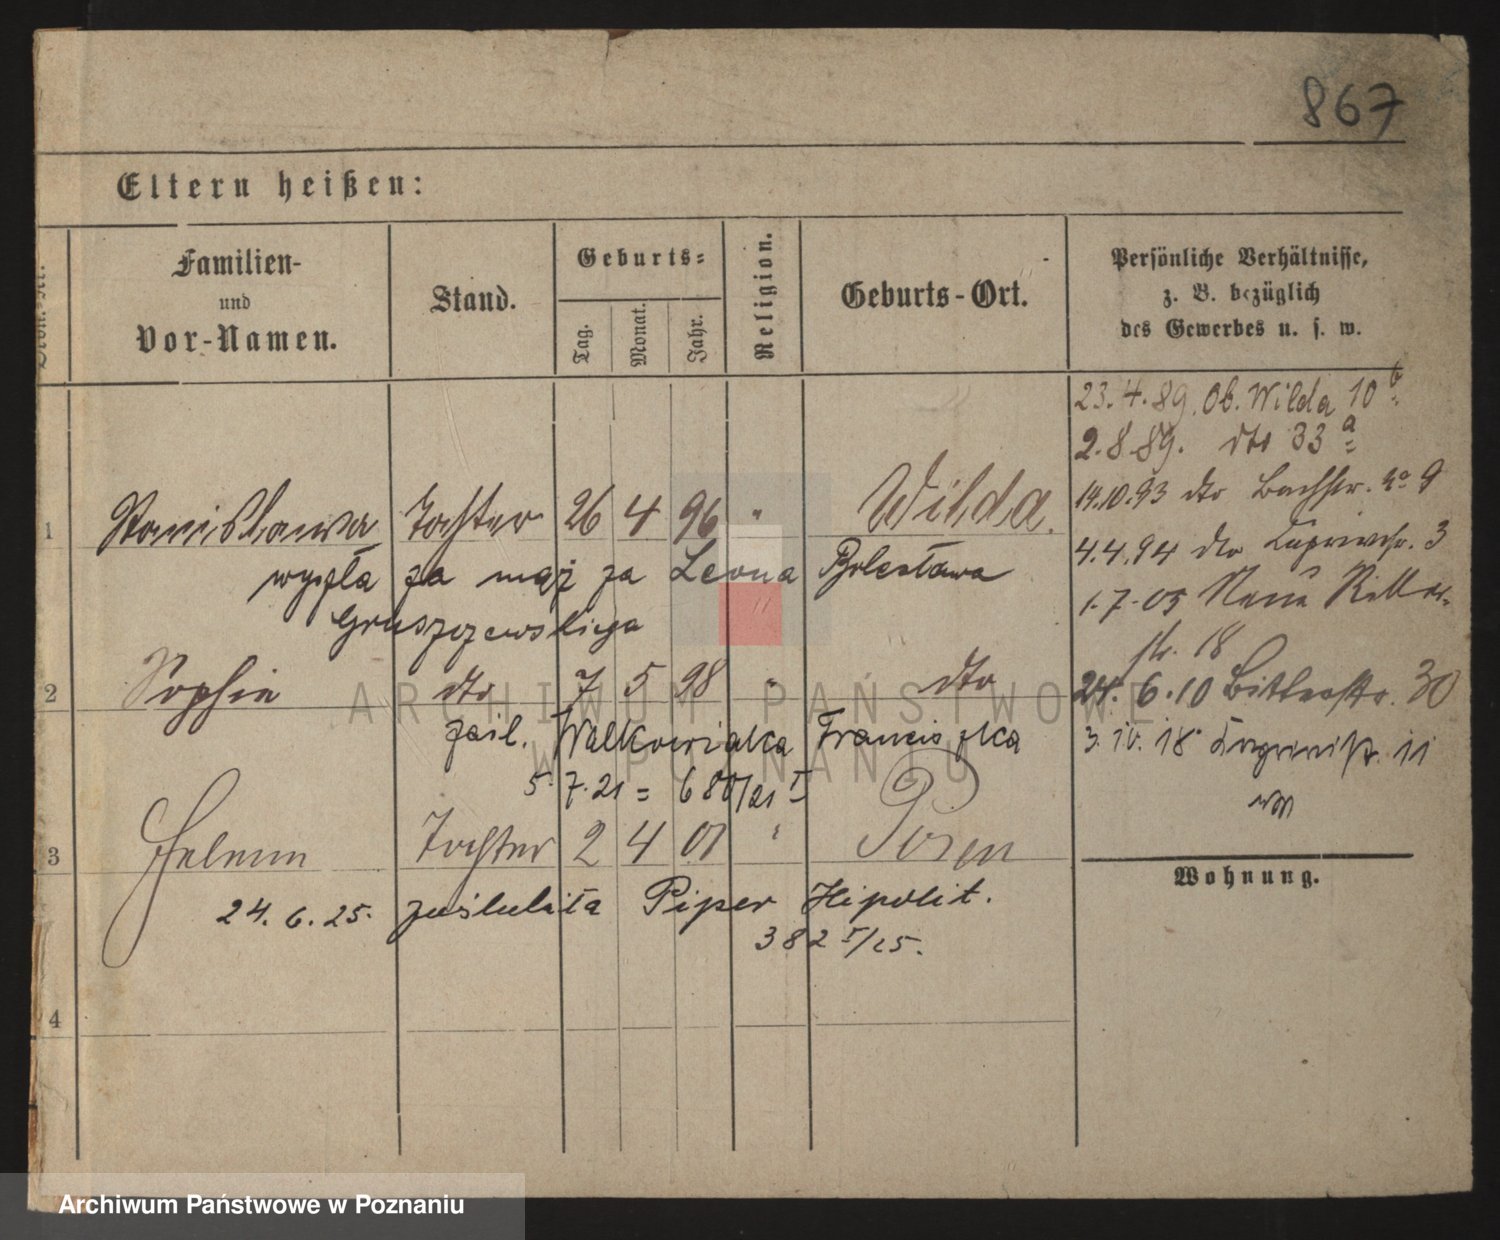 867
Eltern heißen:
Familien-
und
Vor-Namen.
Stand.
Geburts-
Tag.
Monat.
Jahr.
Religion.
Geburts-Ort.
Persönliche Verhältnisse,
z. B. bezüglich
des Gewerbes u. s. w.
23.4.89. Ob. Wilda 10 b
2.8.89. dto 33 a
14.10.93 dto Bachstr. No 9
4.4.94 dto 3
1.7.05 Neue Ritter-
str. 18
24.6.10 Bitterstr. 30
3.IV.18 11
1 Stanislawa Tochter 26 4 96 " Wilda.
wyszła za mąż za Leona Bolesława
Gruszczewskiego
2 Sophie dto 7 5 98 " dto
zaśl. Walkowiaka Franciszka
5.7.21 = 680/21 I
3 Helene Tochter 2 4 01 " Posen
24.6.25. zaślubiła Piper Hipolit.
382 I/25.
4
Wohnung.
ARCHIWUM PAŃSTWOWE
W POZNANIU
Archiwum Państwowe w Poznaniu